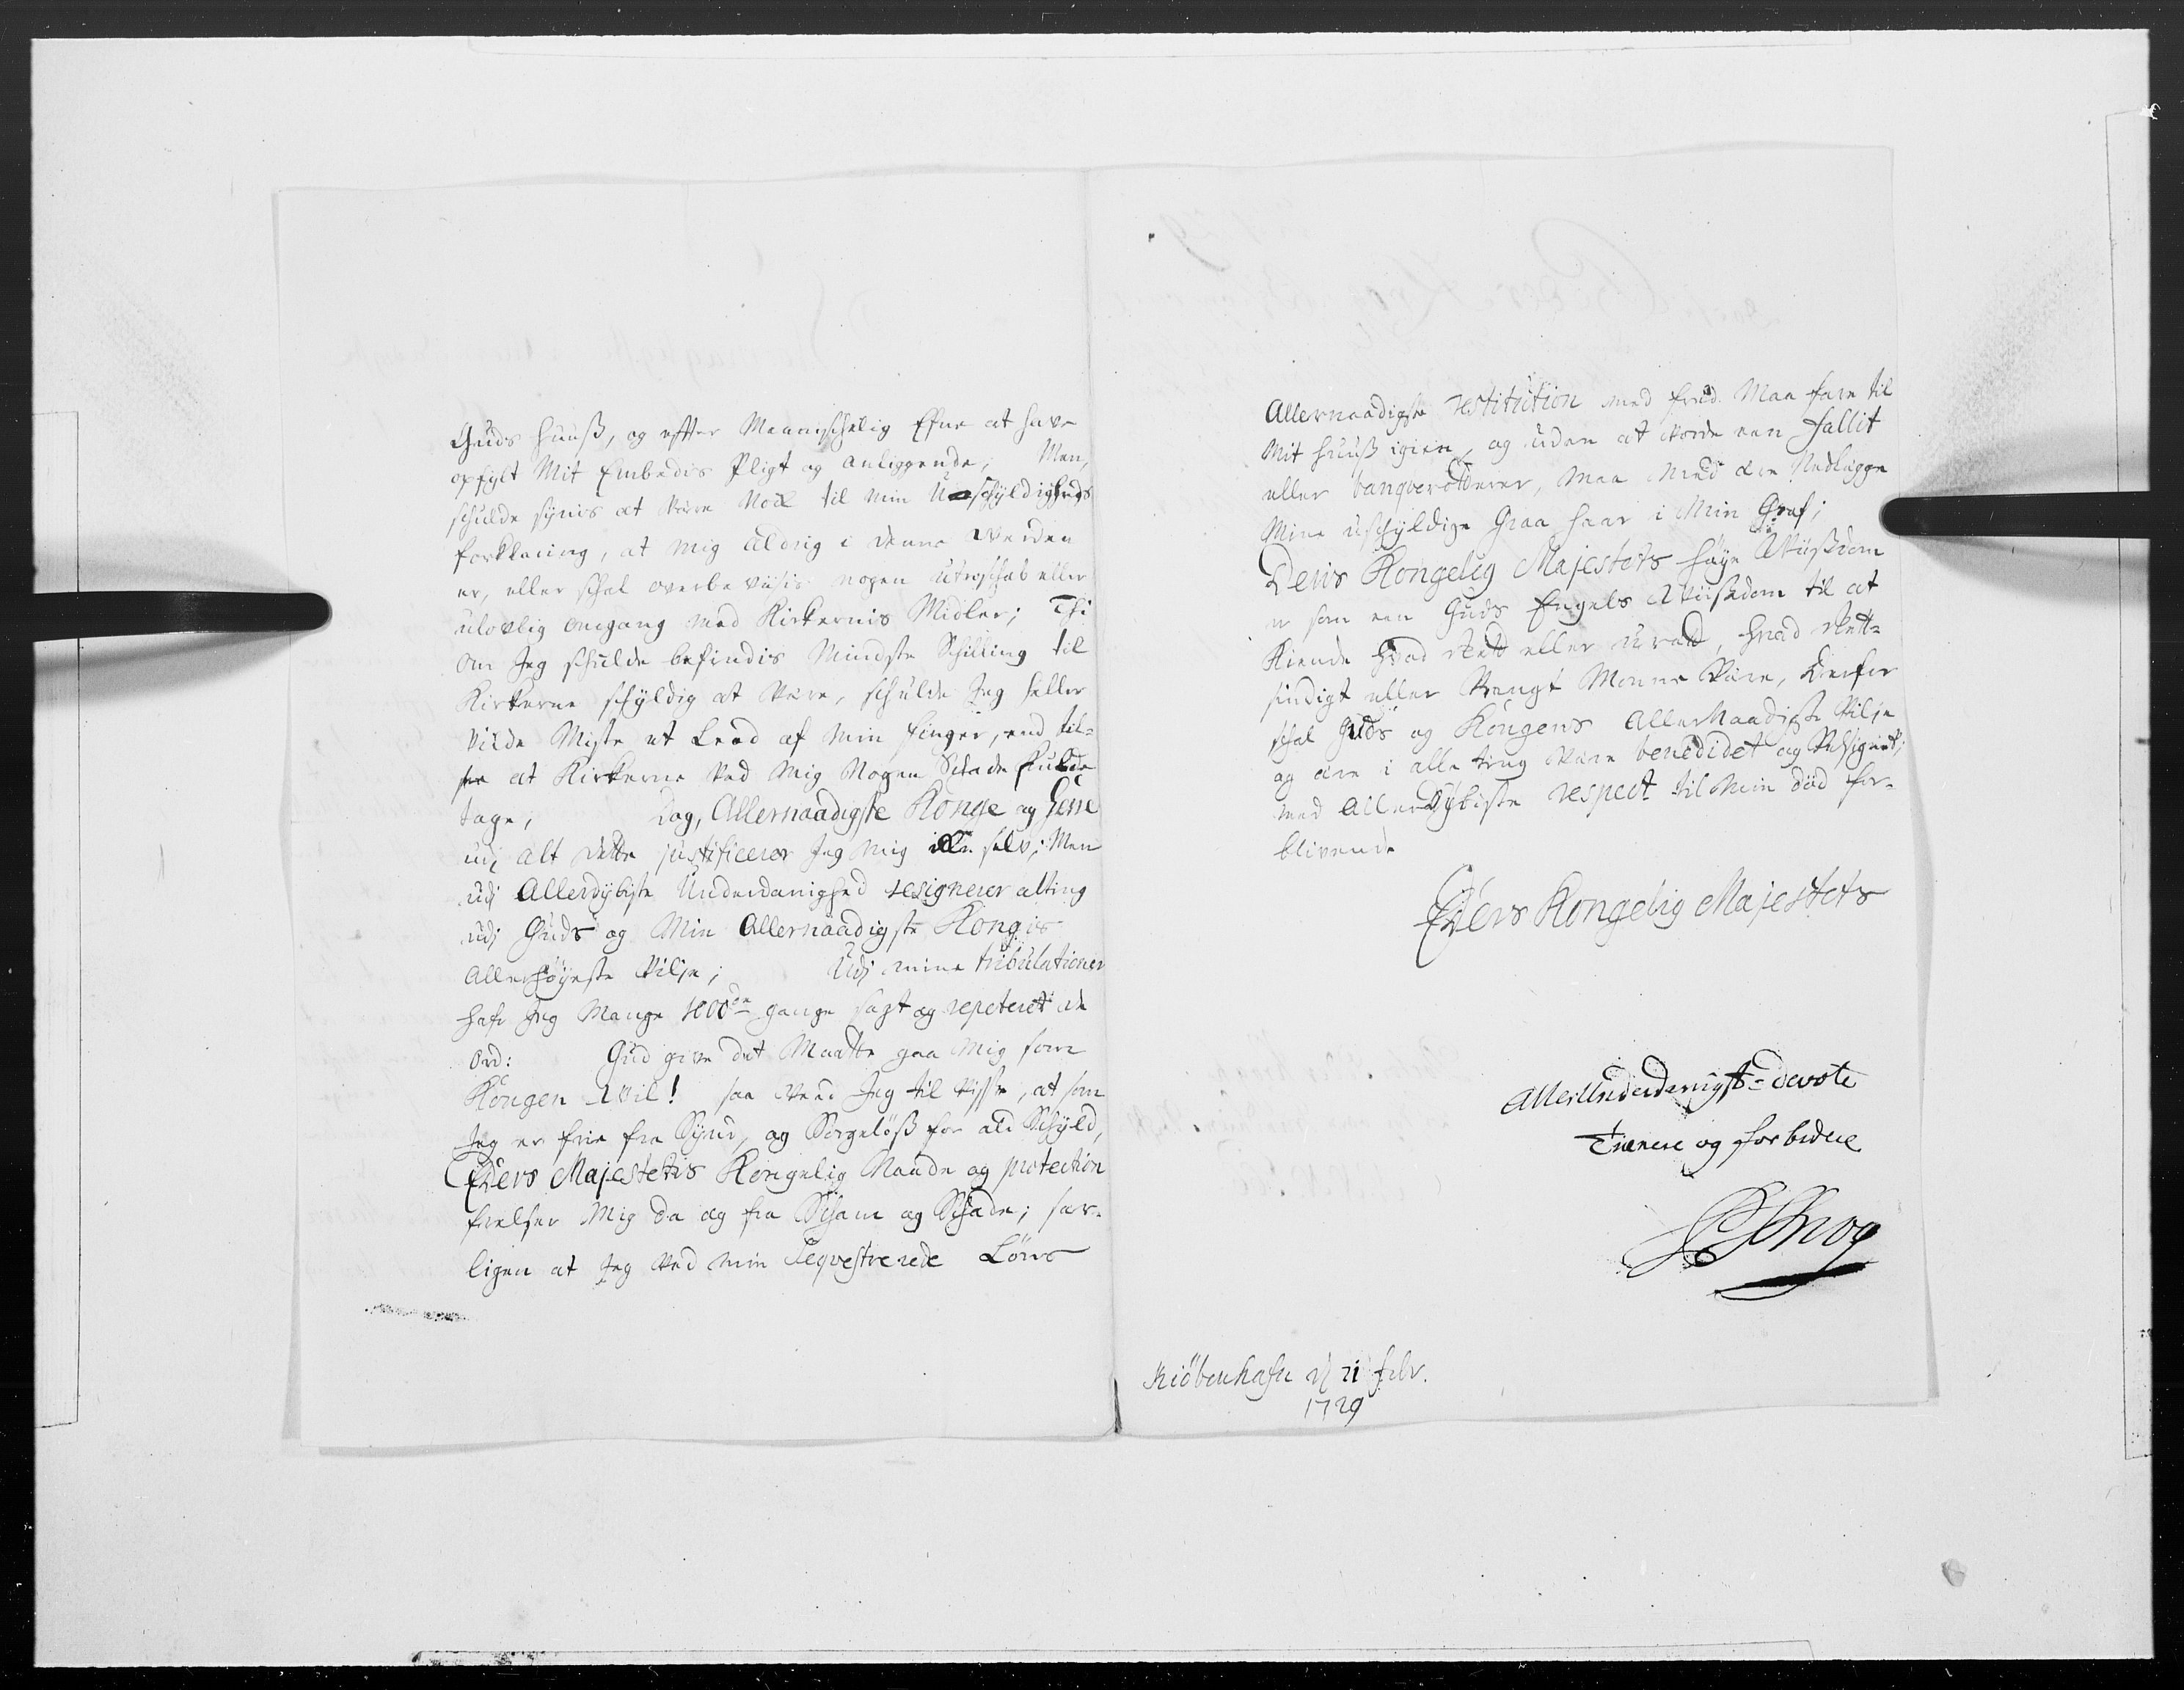 Guds Huuß, og effter Menneschelig Efne at have
opfylt Mit Embedis Pligt og anliggende; Men,
schulde synes at være Nock til min Uschyldigheds
forklaring, at mig aldrig i denne Werden
er, eller schal overbevisis nogen utroschab eller
ulovlig omgang med Kirkernis Midler; Thi
om Jeg schulde befindis Mindste Schilling til
Kirkerne schyldig at være, schulde Jeg heller
vilde Miste et Leed af min finger, end til-
see at Kirkerne ved Mig Nogen Skade skulde
tage; Dog, Allernaadigste Konge og Herre
udj alt dette justificerer Jeg mig icke selv; Men
udj Allerdybiste Underdanighed resignerer alting
udj Guds og Min Allernaadigste Kongis
Allerhöyeste Vilje; Udj mine tribulationer
hafr Jeg Mange 1000de gange sagt og repeteret de
ord: Gud give det Maatte gaa Mig som
Kongen Wil! saa veed Jeg til visse, at som
Jeg er frie fra Synd, og Sorgelöß for ald Schyld,
Eders Majestetis Kongelig Naade og protection
frelser Mig da og fra Scham og Schade; sær-
ligen at Jeg ved min seqvestrerede Löns
Allernaadigste restitution med fred Maa fare til
Mit Huuß igien, og uden at worde een fallit
eller banqverotterer, maa med ære Nedlegge
Mine uschyldige Graa haar i Min Graf;
Deris Kongelig Majestets höye Wiißdom
er som een Guds Engels Wiisdom til at
Kiende hvad rett eller urætt, hvad rett-
sindigt eller Vrangt Monne være, Derfor
schal Guds og Kongens Allernaadigste Vilje
og ære i alle ting være benedidet og Velsignet;
med allerdybiste respect til Min död for-
blivende
Eders Kongelig Majestets
AllerUnderdanigst-devote
Tienere og forbedere
P Krog
Kiöbenhafn d 21 Febr.
1729